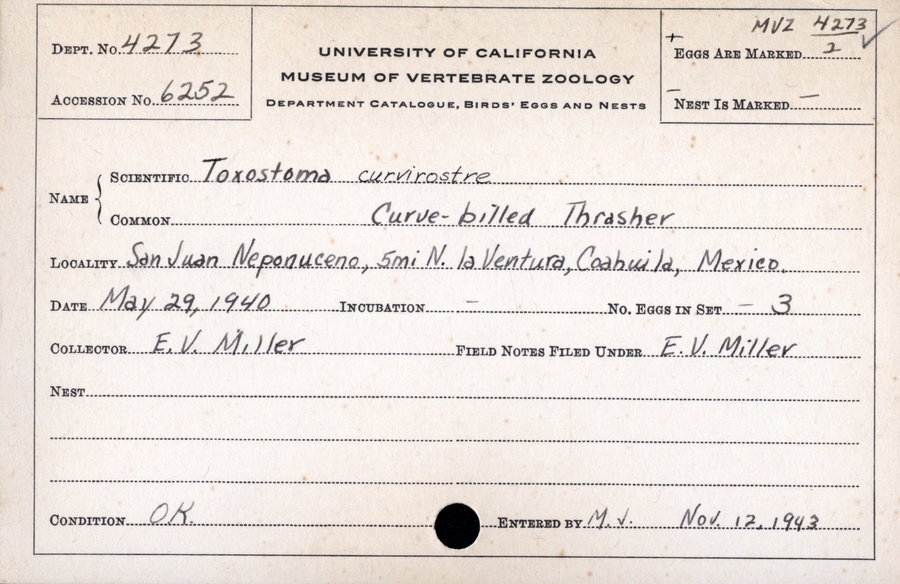 MVZ 4273
DEPT. NO. 4273
UNIVERSITY OF CALIFORNIA
+ EGGS ARE MARKED 2 ✓
MUSEUM OF VERTEBRATE ZOOLOGY
ACCESSION NO. 6252
DEPARTMENT CATALOGUE, BIRDS' EGGS AND NESTS
– NEST IS MARKED –
NAME
SCIENTIFIC Toxostoma curvirostre
COMMON Curve-billed Thrasher
LOCALITY San Juan Neponuceno, 5mi N. la Ventura, Coahuila, Mexico.
DATE May 29, 1940 INCUBATION – NO. EGGS IN SET – 3
COLLECTOR E. V. Miller FIELD NOTES FILED UNDER E. V. Miller
NEST
CONDITION OK. ENTERED BY M. V. Nov. 12, 1943